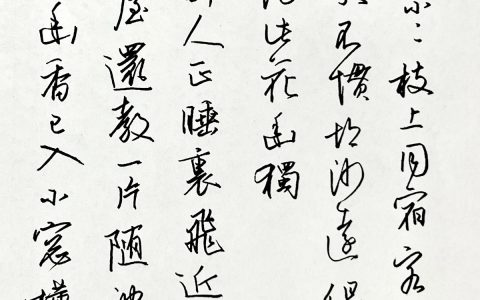 小〻枝上同宿客
不慣胡沙遠但
作此花幽獨
人正睡裏飛近
屋還教一片随波
幽香已入小窓橫